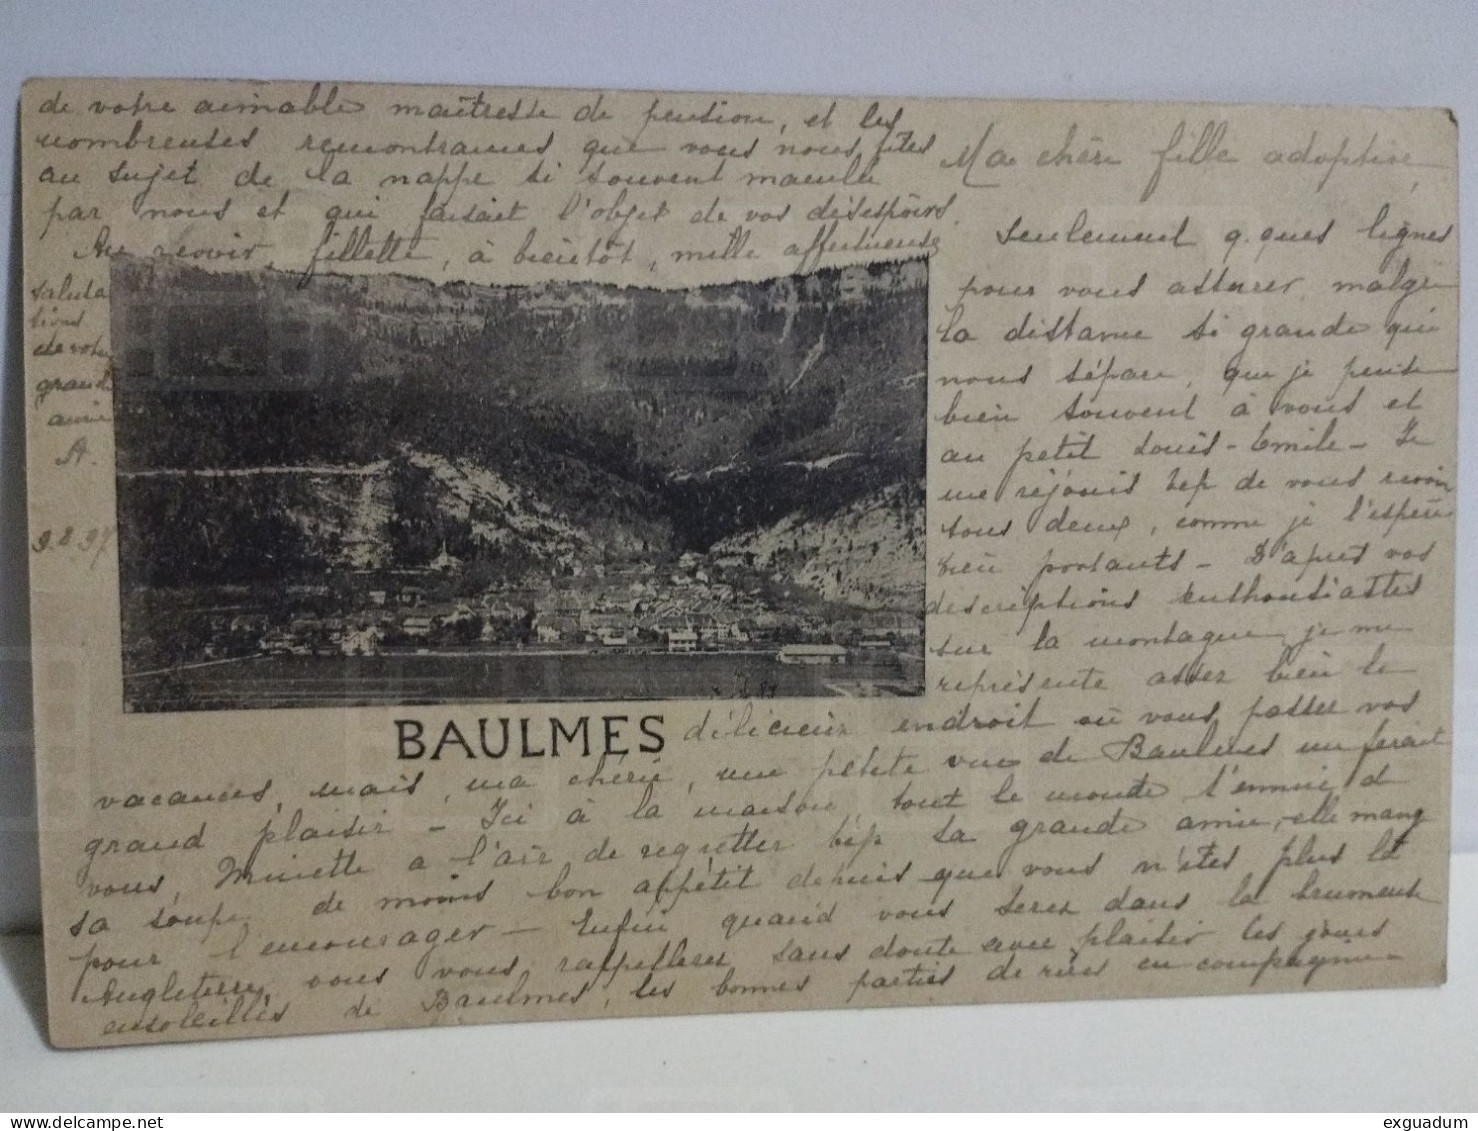 Ma chère fille adoptive,
Seulement q.ques lignes
pour vous assurer, malgré
la distance si grande qui
nous sépare, que je pense
bien souvent à vous et
au petit Louis-Emile - Je
me réjouis bcp de vous revoir
tous deux, comme je l'espère
bien portants - D'après vos
descriptions enthousiastes
sur la montagne, je me
représente assez bien le
délicieux endroit où vous passez vos
vacances, mais, ma chérie, une petite vue de Baulmes me ferait
grand plaisir - Ici à la maison tout le monde s'ennuie d
vous, Minette a l'air de regretter bcp sa grande amie, elle mange
sa soupe de moins bon appétit depuis que vous n'êtes plus là
pour l'encourager - Enfin quand vous serez dans la brumeuse
Angleterre, vous vous rappellerez sans doute avec plaisir les jours
ensoleillés de Baulmes, les bonnes parties de rires en compagnie
de votre aimable maîtresse de pension, et les
nombreuses remontrances que vous nous fîtes
au sujet de la nappe si souvent maculée
par nous et qui faisait l'objet de vos désespoirs.
Au revoir, fillette, à bientôt, mille affectueuses
saluta
tions
de votre
grande
amie
A.
9.8.97
BAULMES
exguadum